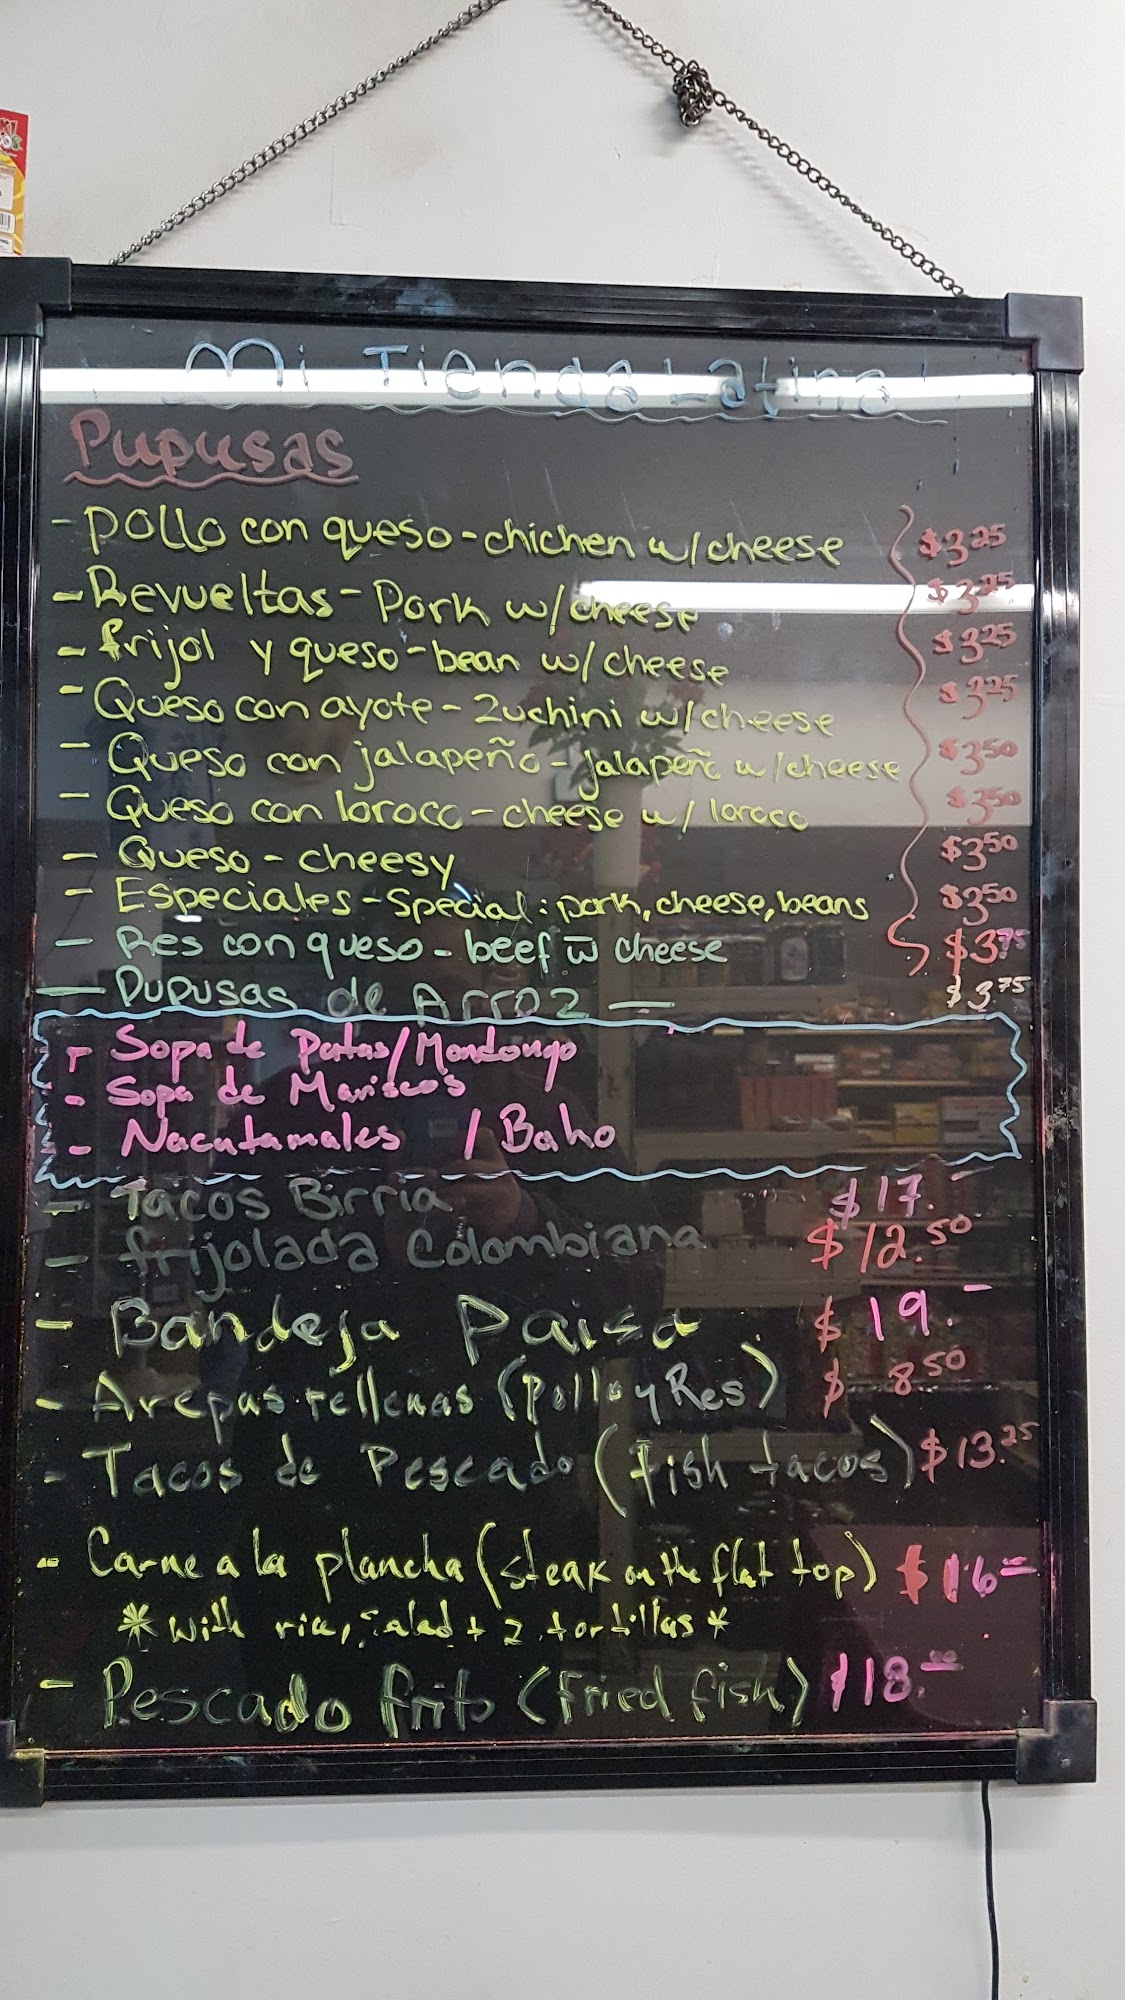 Mi Tienda Latina
Pupusas
- pollo con queso - chichen w/ cheese $3.25
- Revueltas - Pork w/ cheese $3.25
- frijol y queso - bean w/ cheese $3.25
- Queso con ayote - Zuchini w/ cheese $3.25
- Queso con jalapeño - jalapeñc w/ cheese $3.50
- Queso con loroco - cheese w/ loroco $3.50
- Queso - cheesy $3.50
- Especiales - Special: pork, cheese, beans $3.50
- Res con queso - beef w cheese $3.75
— Pupusas de Arroz — $3.75
- Sopa de Patas/Mondongo
- Sopa de Mariscos
- Nacatamales / Baho
- Tacos Birria $17.-
- frijolada Colombiana $12.50
- Bandeja Paisa $19.-
- Arepas rellenas (pollo y Res) $8.50
- Tacos de Pescado (fish tacos) $13.25
- Carne a la plancha (steak on the flat top) $16=
* with rice, salad + 2 tortillas *
- Pescado frito (Fried fish) $18.00